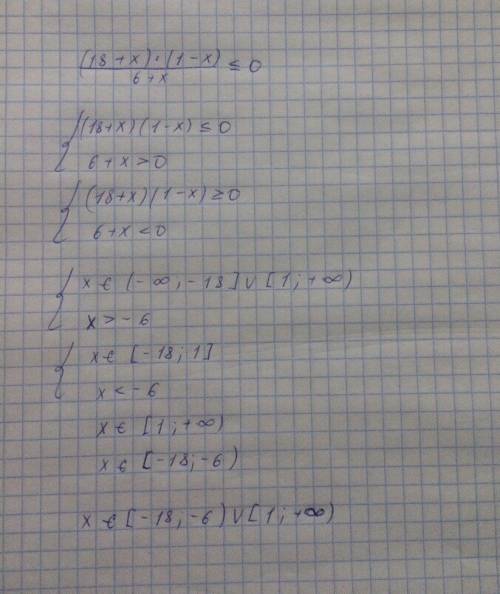 (18+x)·(1-x)
6+x ≤ 0
(18+x)(1-x) ≤ 0
6+x>0
(18+x)(1-x) ≥ 0
6+x<0
x ∈ (-∞, -18] ∪ [1; +∞)
x > -6
x ∈ [-18; 1]
x < -6
x ∈ [1; +∞)
x ∈ [-18; -6)
x ∈ [-18, -6) ∪ [1; +∞)